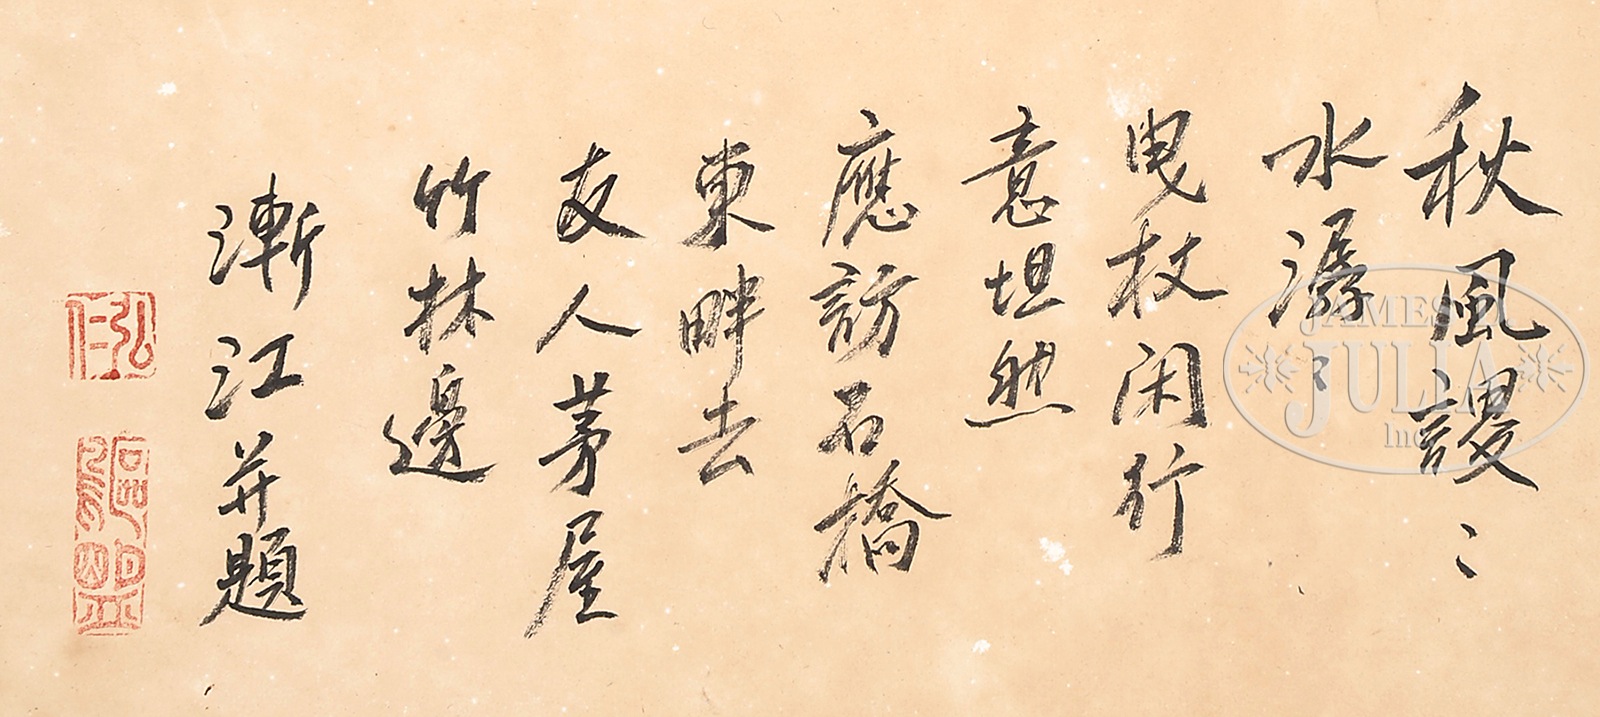 秋風謖〻
水潺〻
曳杖闲行
意坦然
應訪石橋
東畔去
友人茅屋
竹林邊
漸江并題
弘仁
JAMES D.
JULIA
Inc.